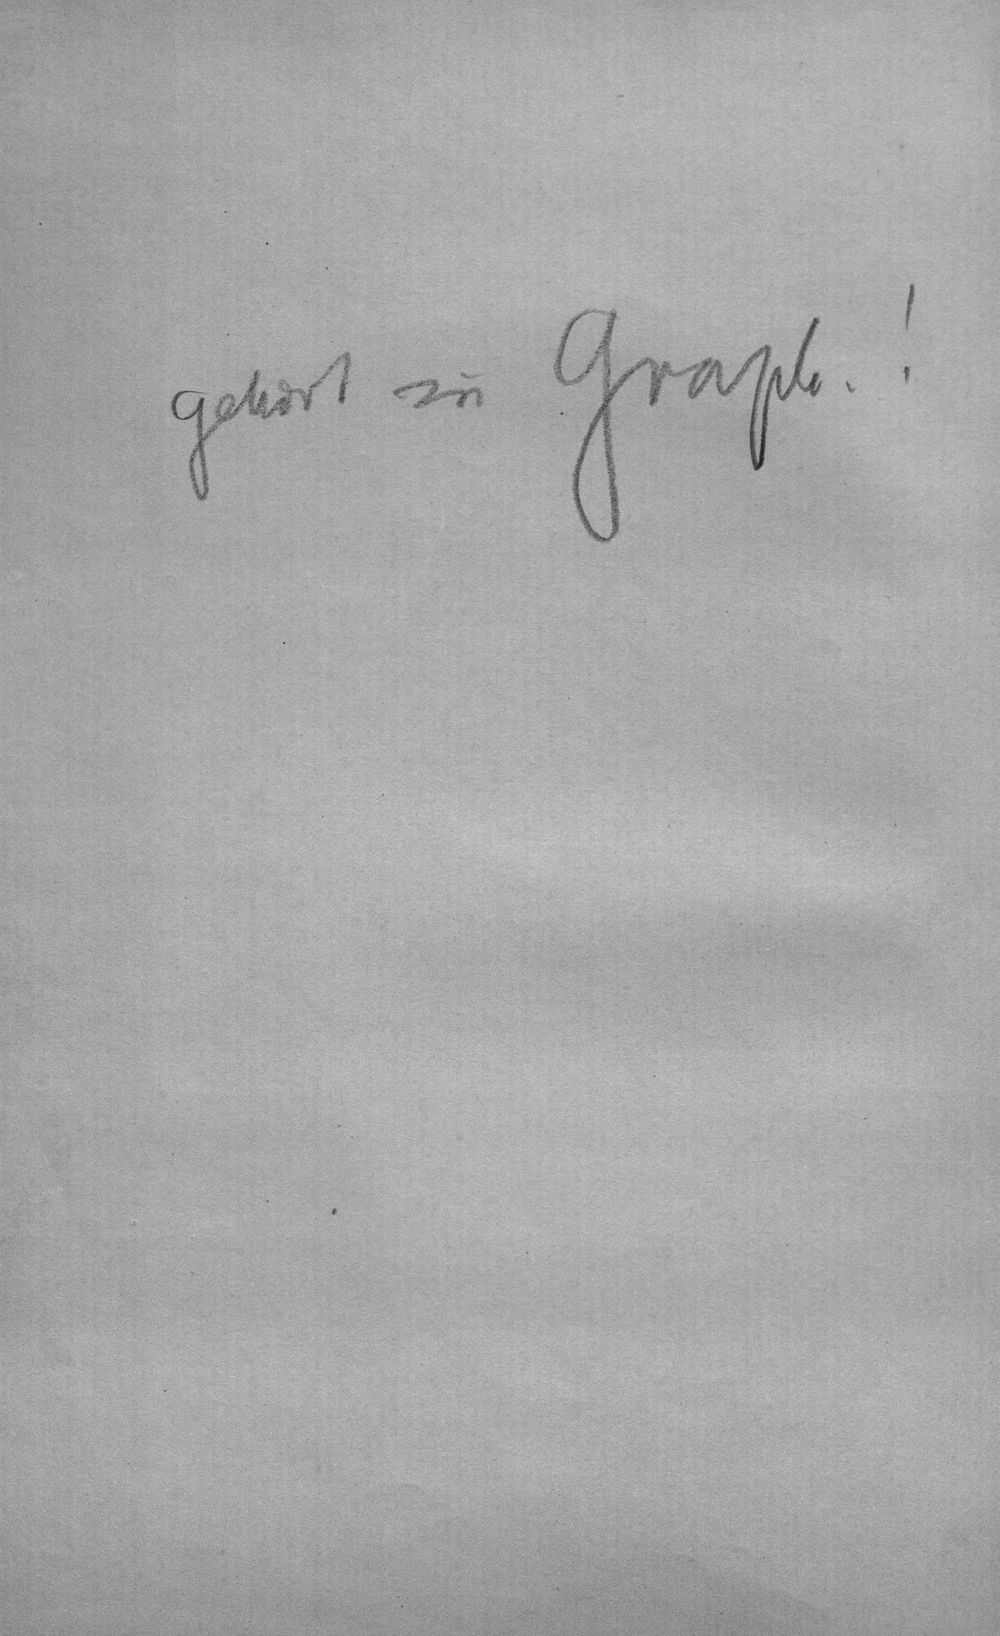 gehört zu Graph. !